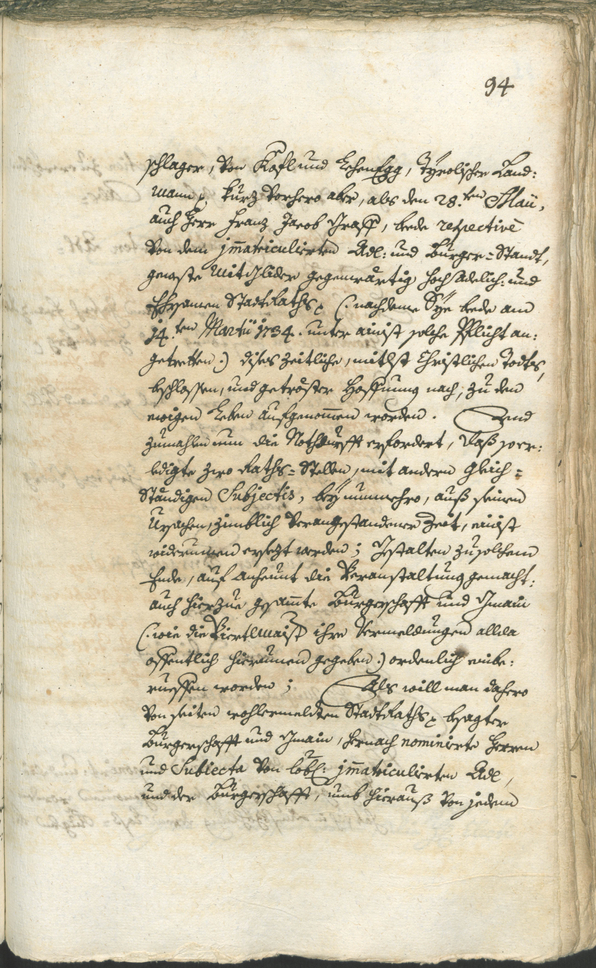 94
schlager, von Kofl und Lehenegg, Tyrolischer Land:
mann p. kurz vorhero aber, als den 28.ten May,
auch Herr Franz Jacob Graff, bede respective
von dem jmatriculierten Adl: und Burger=Standt,
geweste Mitglider gegenwärtig Hoch Adelich: und
Ehrsamen StattRaths p (: nachdeme Sye bede am
14.ten Martÿ 1734. unter ainist solche Pflicht an:
getretten :) dises Zeitliche, mitlst Christlichen Todts,
beschlossen, und getröster Hoffnung nach, zu dem
ewigen Leben aufgenommen worden. Und
zumahlen nun die Nothdurfft erfordert, daß sover:
ledigte zwo Raths=Stellen, mit andern gleich:
Ständigen Subjectis, bey nunmehro, auß seinen
Ursachen, zimblich verangestandener Zeit, ainist
widerumen ersezt werden; Gestalten zu solchem
Ende, auf anheunt die Veranstaltung gemacht:
auch hierzue gesamte Burgerschafft und Gmain
(: wie die Viertlmaister ihre Vermeldungen allda
offentlich hierumen gegeben :) ordenlich einbe:
rueffen worden; Als will man dahero
von seiten wohlermelten StattRaths p besagter
Burgerschafft und Gmain, hernach nominierte Herren
und Subiecta von löbl: jmatriculierten Adl,
und der Burgerschafft, umb hierauß von jedem